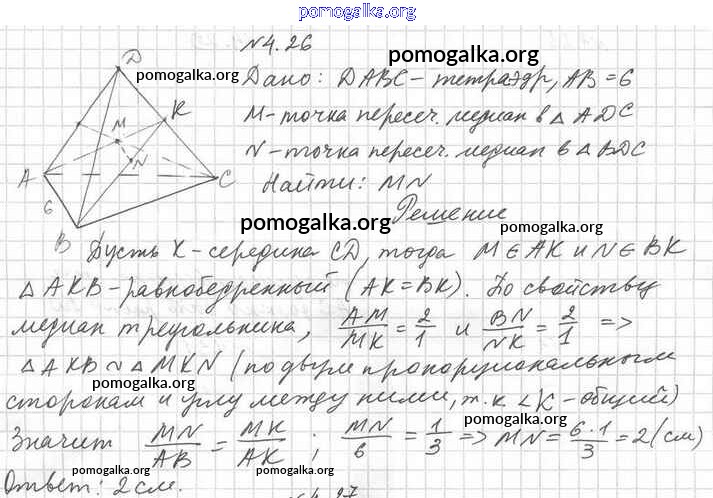 pomogalka.org
N4.26
pomogalka.org
pomogalka.org
Дано: DABC – тетраэдр, AB = 6
M – точка пересеч. медиан в △ ADC
N – точка пересеч. медиан в △ BDC
Найти: MN
D
K
M
N
A
C
6
B
pomogalka.org
Решение
pomogalka.org
Пусть K – середина CD, тогда M ∈ AK и N ∈ BK
△ AKB – равнобедренный (AK = BK). По свойству
медиан треугольника, AM/MK = 2/1 и BN/NK = 2/1 =>
△ AKB ~ △ MKN (по двум пропорциональным
pomogalka.org
сторонам и углу между ними, т.к ∠K – общий)
pomogalka.org
Значит MN/AB = MK/AK ; MN/6 = 1/3 => MN = 6·1/3 = 2 (см)
pomogalka.org
pomogalka.org
pomogalka.org
Ответ: 2 см.